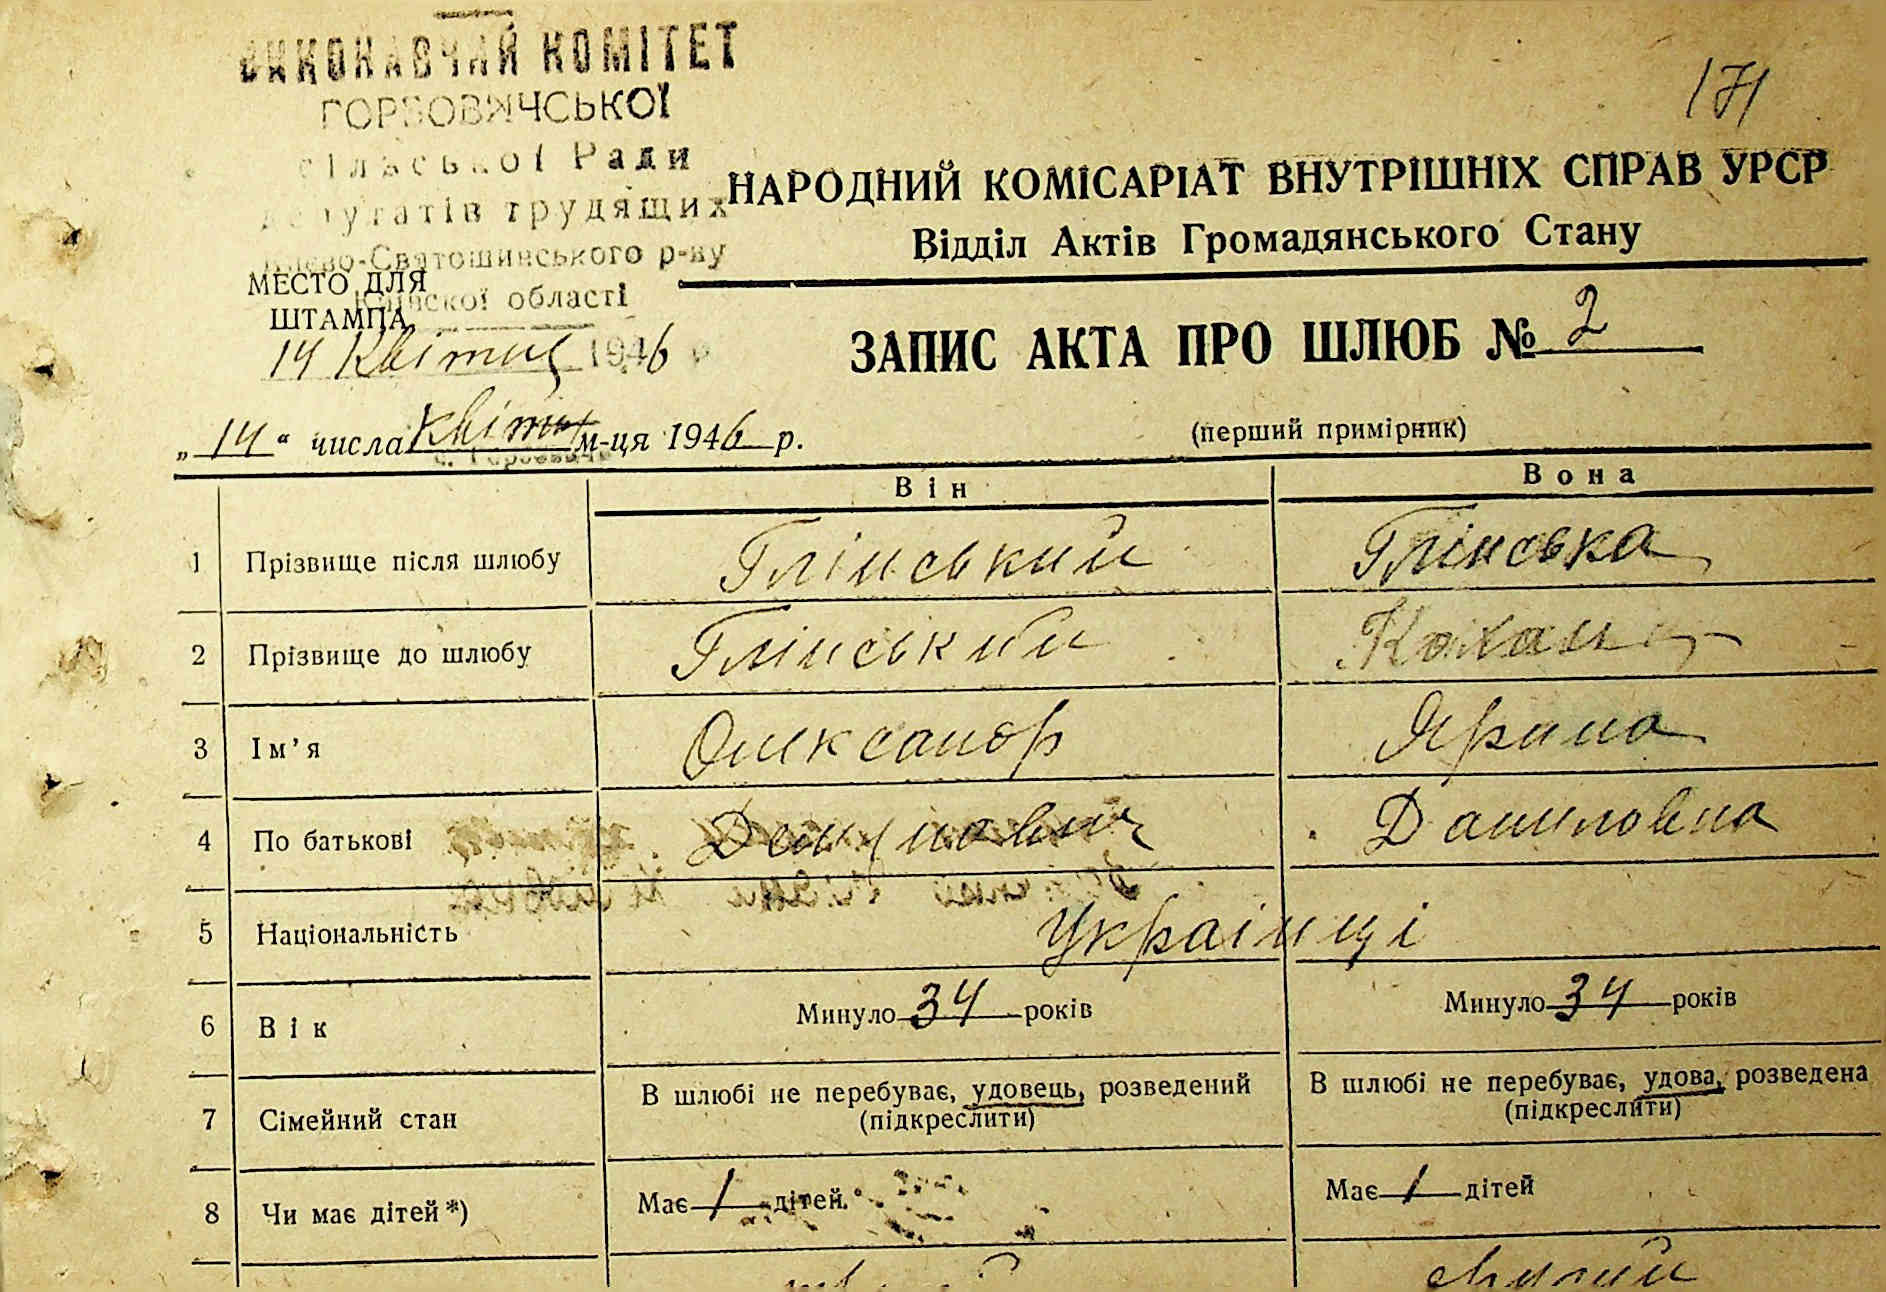 ВИКОНАВЧИЙ КОМІТЕТ
ГОРБОВИЧСЬКОЇ
сільської Ради
депутатів трудящих
Києво-Святошинського р-ну
Київскої області
МЕСТО ДЛЯ
ШТАМПА
14 Квітня 1946
171
НАРОДНИЙ КОМІСАРІАТ ВНУТРІШНІХ СПРАВ УРСР
Відділ Актів Громадянського Стану
ЗАПИС АКТА ПРО ШЛЮБ № 2
(перший примірник)
„14“ числа Квітня м-ця 1946 р.
с. Горбовичі
Він Вона
1 Прізвище після шлюбу Глінський Глінська
2 Прізвище до шлюбу Глінський
3 Ім’я Олександр Ярина
4 По батькові Данилoвна
5 Національність Українці
6 Вік Минуло 34 років Минуло 34 років
7 Сімейний стан В шлюбі не перебуває, удовець, розведений (підкреслити) В шлюбі не перебуває, удова, розведена (підкреслити)
8 Чи має дітей*) Має 1 дітей. Має 1 дітей